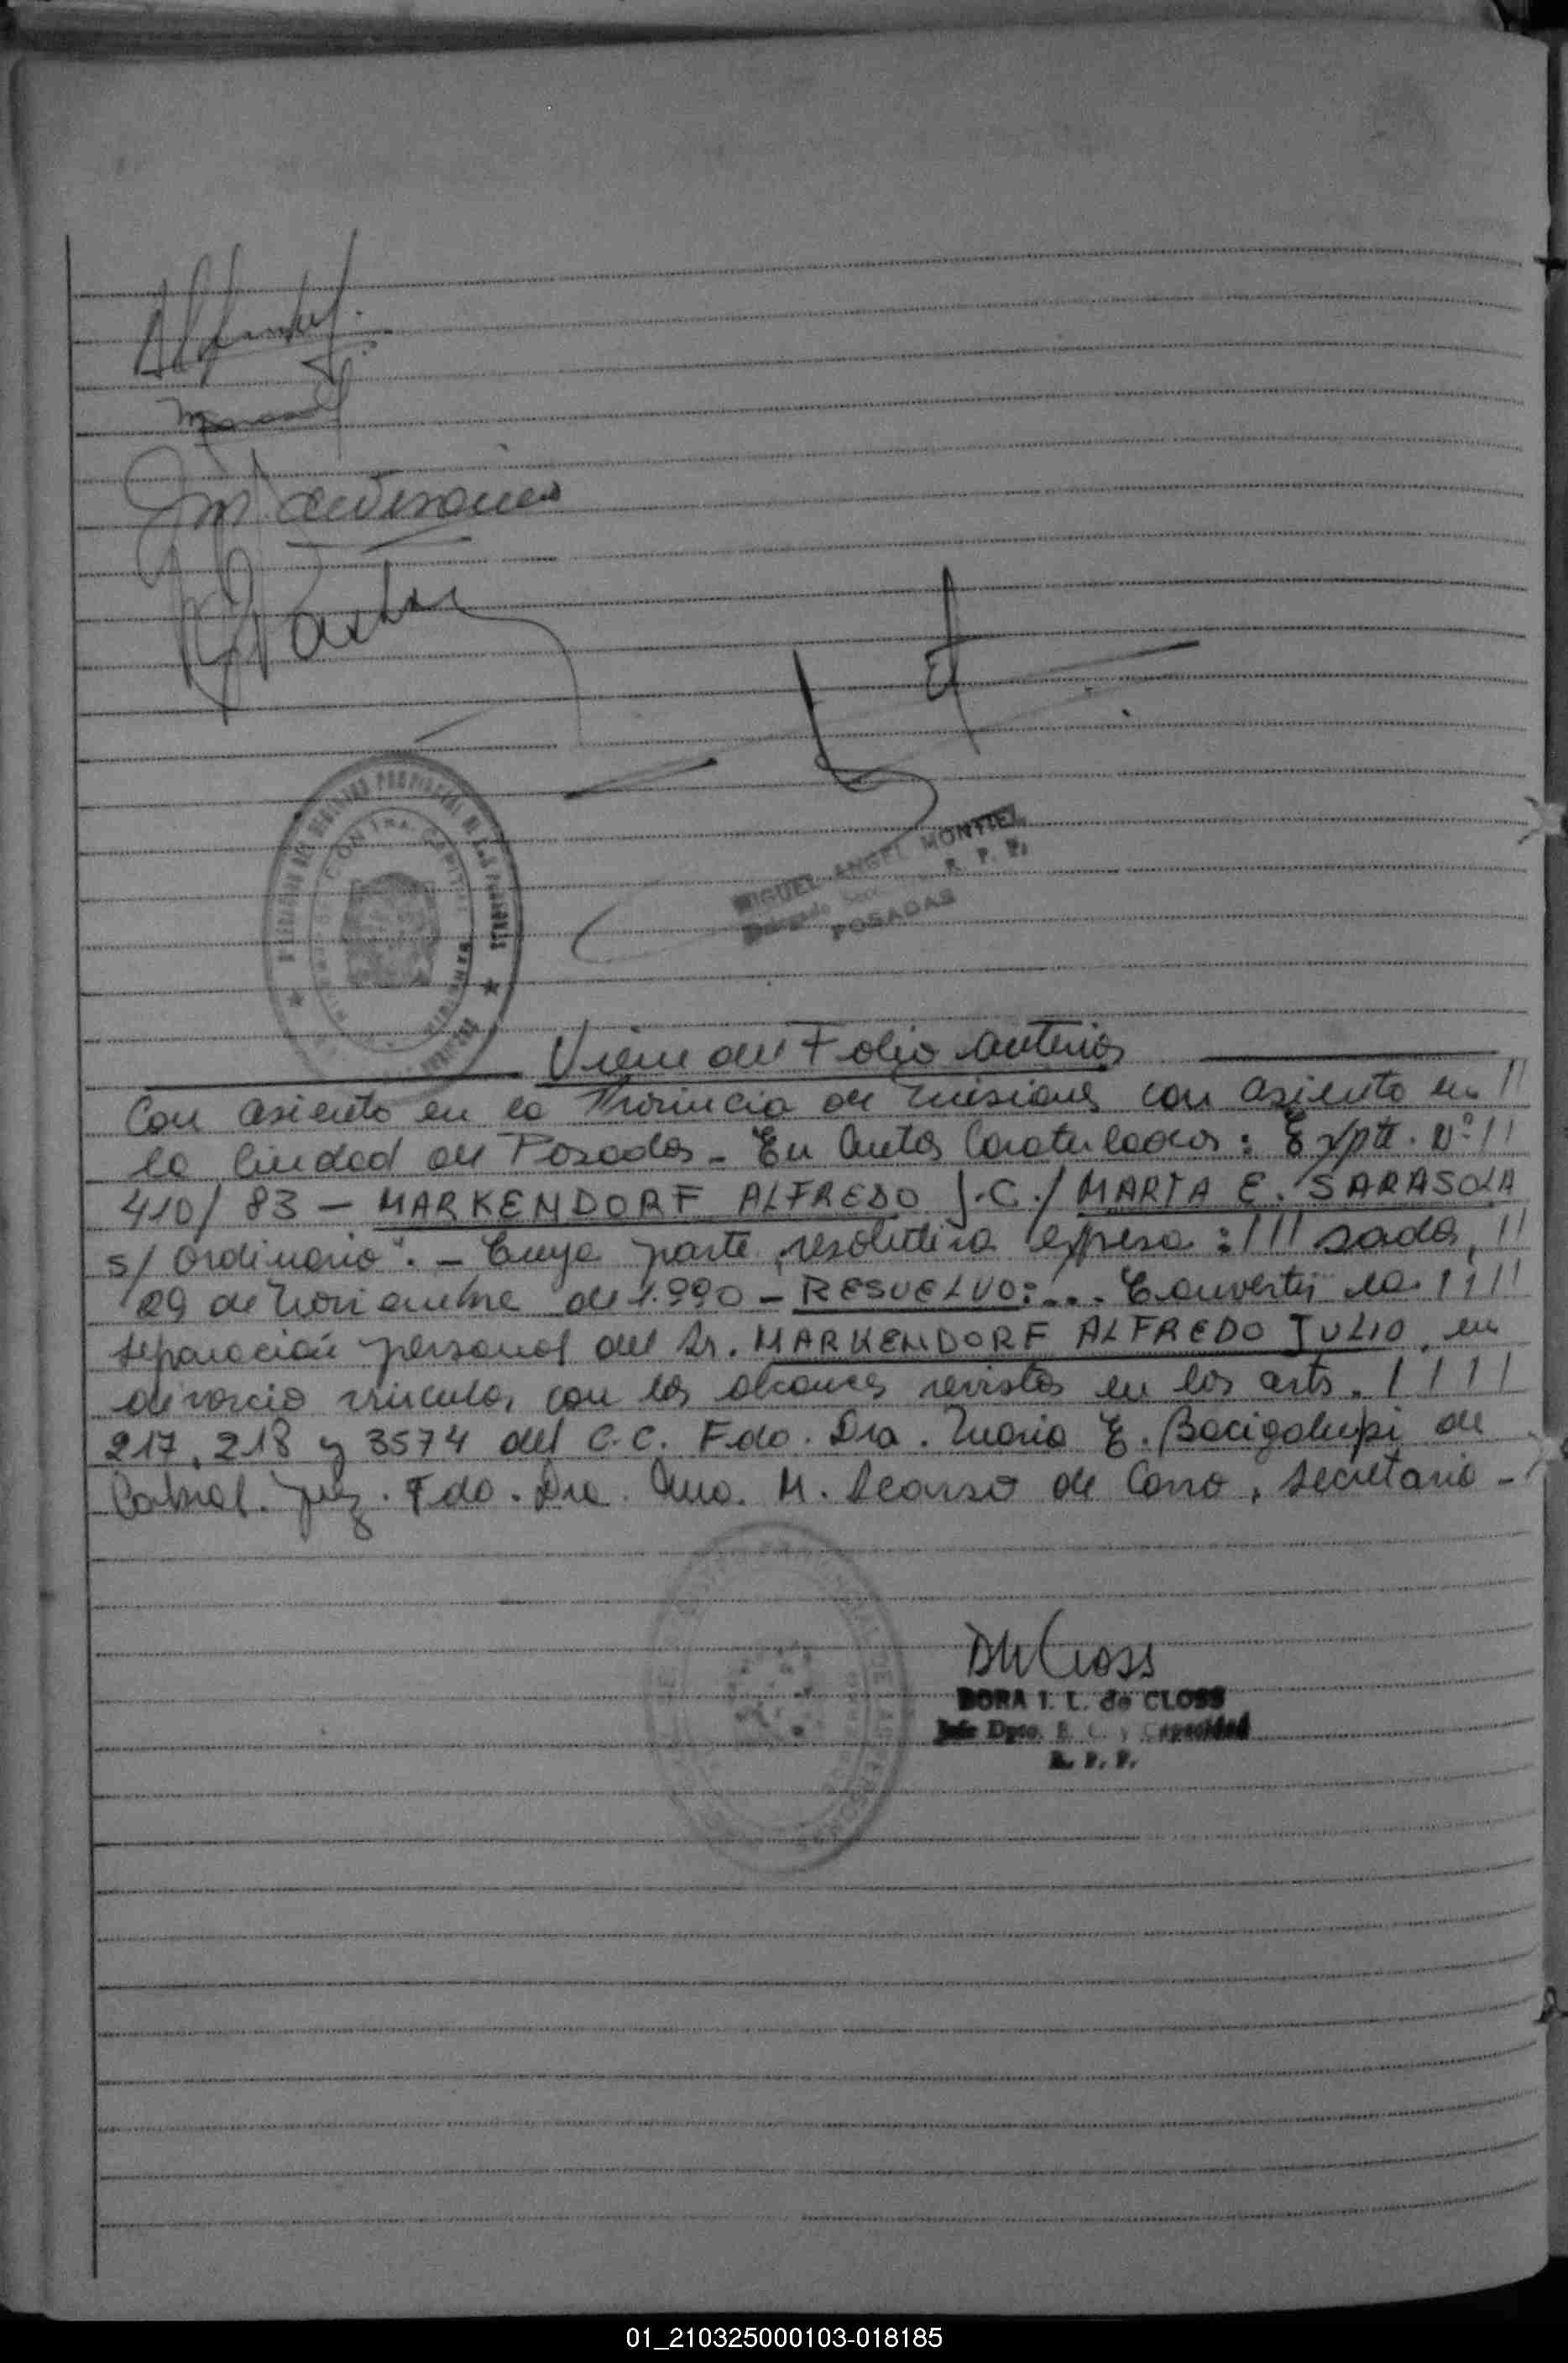 MIGUEL ANGEL MONTIEL
Delegado R. P. P.
POSADAS
Viene del Folio anterior
Con asiento en la Provincia de Misiones con asiento en //
la Ciudad de Posadas - En Autos Caratulados: Expte. Nº //
410/83 - MARKENDORF ALFREDO J.C./ MARTA E. SARASOLA
s/ Ordinario". - Cuya parte resolutiva expresa: /// sadas, //
29 de Noviembre de 1.990 - RESUELVO: ... Convertir la ////
separación personal del Sr. MARKENDORF ALFREDO JULIO, en
divorcio vincular, con los alcances revistos en los arts. ////
217, 218 y 3574 del C.C. Fdo. Dra. Maria E. Bacigalupi de
Cabral. Juez. Fdo. Dra. Ana. M. de Corro, Secretaria -
DORA I. L. de CLOSS
Jefe Dpto. E. C. y Capacidad
R. P. P.
01_210325000103-018185